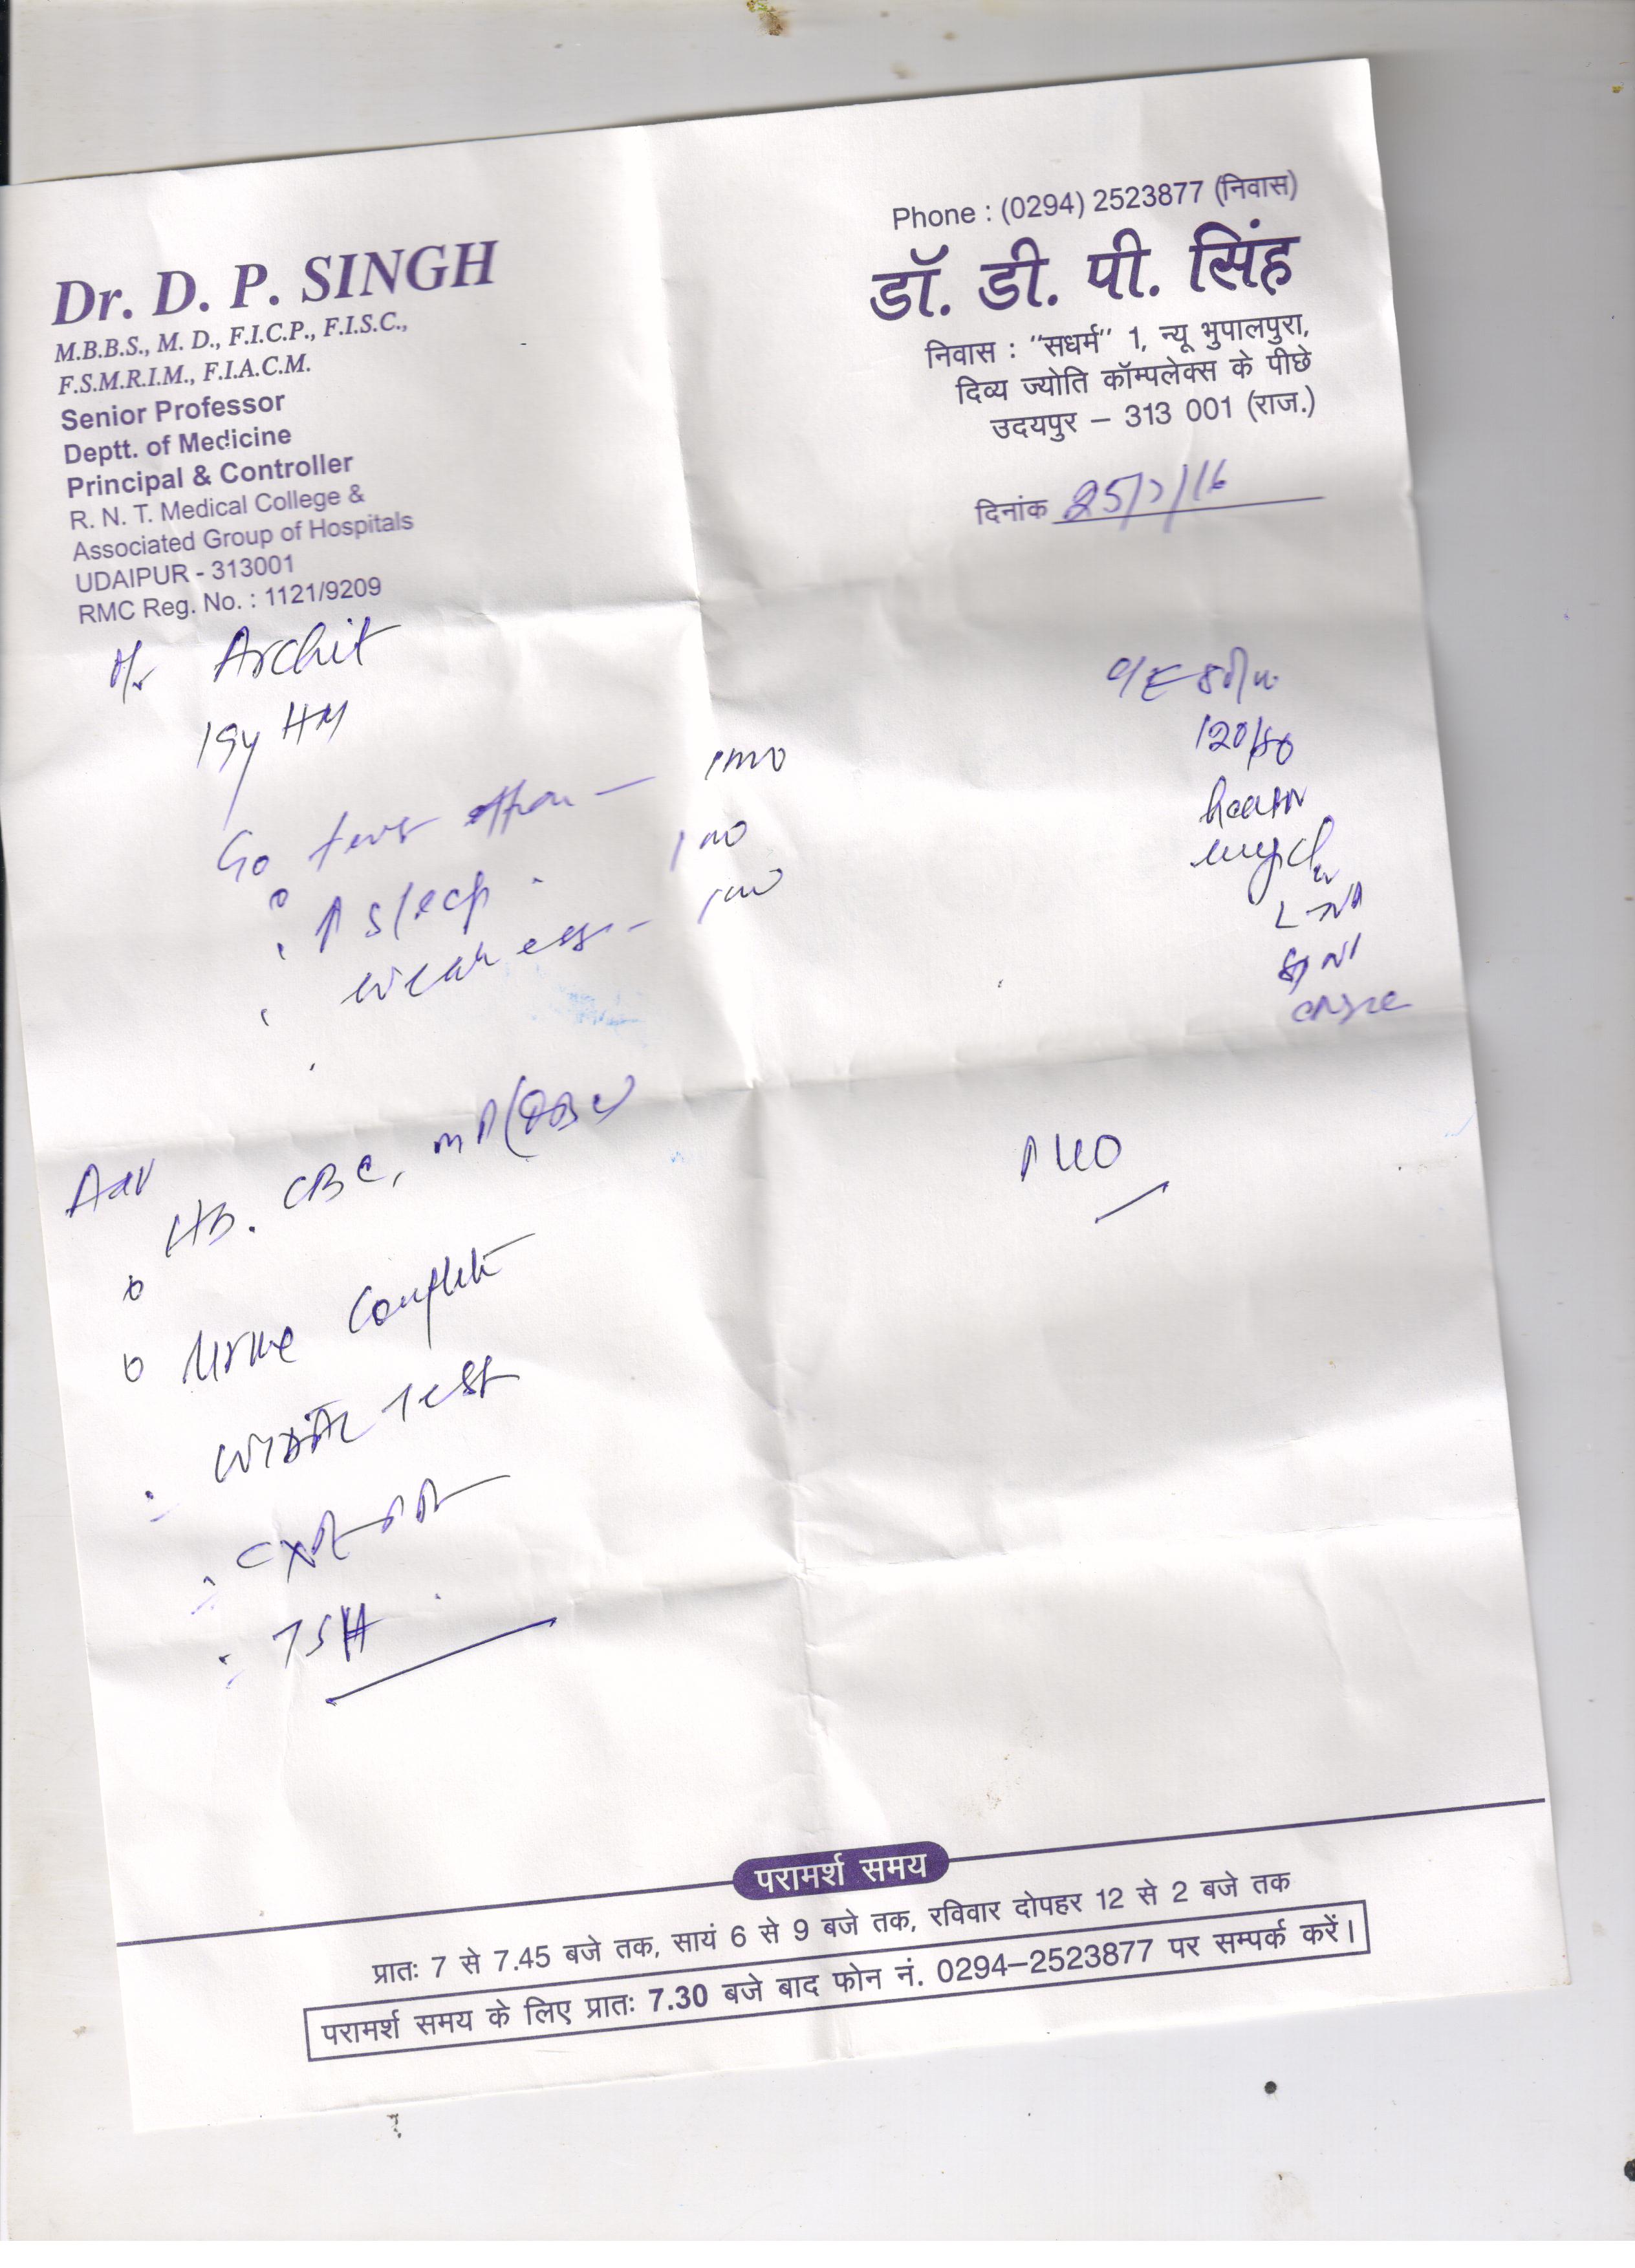 Phone : (0294) 2523877 (निवास)
Dr. D. P. SINGH
M.B.B.S., M. D., F.I.C.P., F.I.S.C.,
F.S.M.R.I.M., F.I.A.C.M.
Senior Professor
Deptt. of Medicine
Principal & Controller
R. N. T. Medical College &
Associated Group of Hospitals
UDAIPUR - 313001
RMC Reg. No. : 1121/9209
डॉ. डी. पी. सिंह
निवास : "सधर्म" 1, न्यू भुपालपुरा,
दिव्य ज्योति कॉम्पलेक्स के पीछे
उदयपुर – 313 001 (राज.)
दिनांक
Archit
HM
1mo
↑ Sleep
1mo
weakness - 1mo
120/80
PUO
Adv
HB. CBC,
Urine Complete
Widal Test
TSH
परामर्श समय
प्रातः 7 से 7.45 बजे तक, सायं 6 से 9 बजे तक, रविवार दोपहर 12 से 2 बजे तक
परामर्श समय के लिए प्रातः 7.30 बजे बाद फोन नं. 0294–2523877 पर सम्पर्क करें।